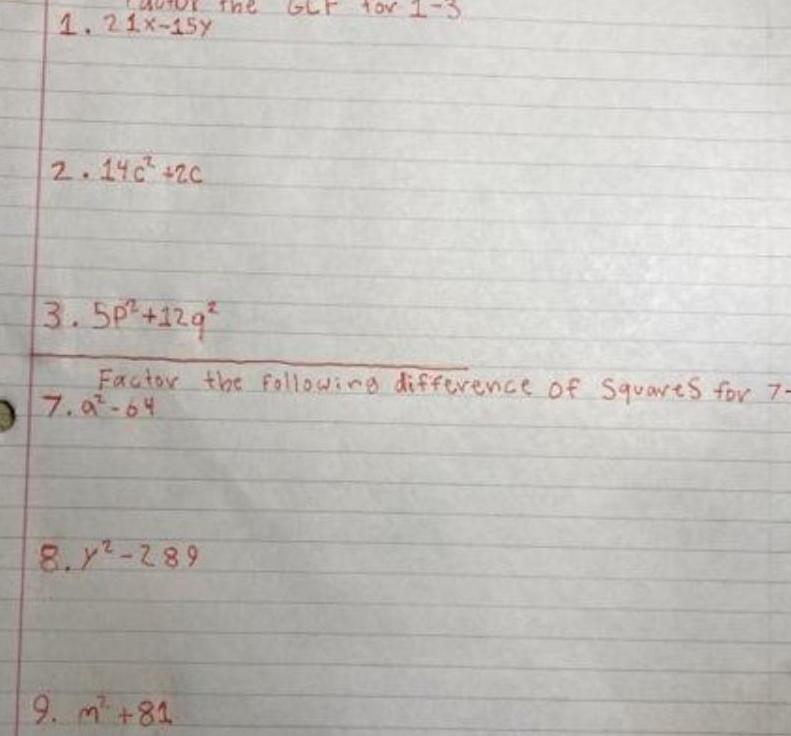 Factor the GCF for 1-3
1. 21x-15y
2. 14c² +2c
3. 5p²+12q²
Factor the following difference of squares for 7-
7. a²-64
8. y²-289
9. m²+81